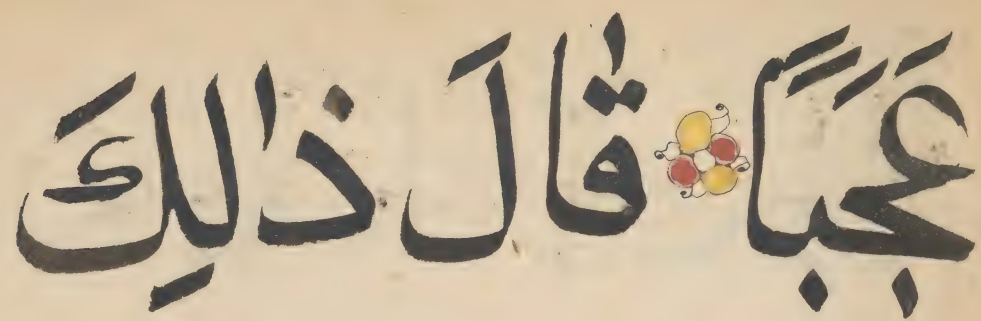 عَجَبًا قَالَ ذٰلِكَ